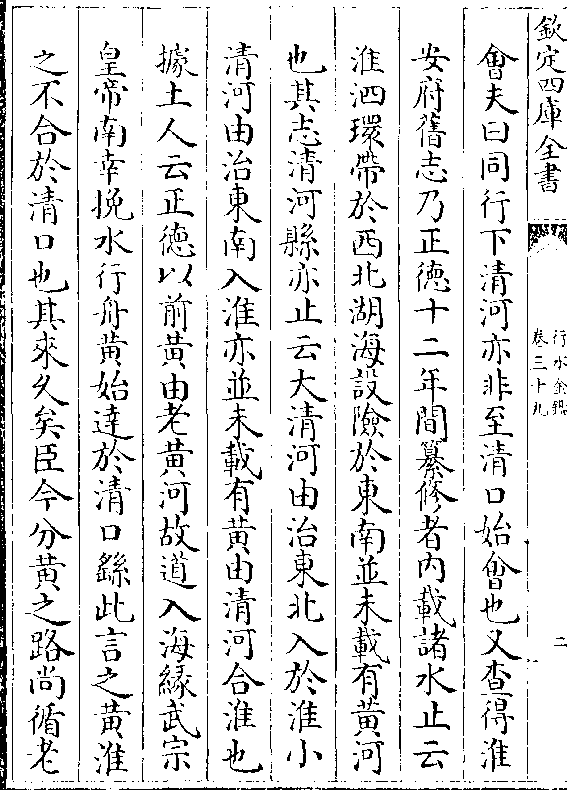 欽定四庫全書
行水金鑑
卷三十九
二
會夫曰同行下清河亦非至清口始會也又查得淮
安府舊志乃正德十二年間纂修者內載諸水止云
淮泗環帶於西北湖海設險於東南並未載有黄河
也其志清河縣亦止云大清河由治東北入於淮小
清河由治東南入淮亦並未載有黄由清河合淮也
據土人云正德以前黄由老黄河故道入海緣武宗
皇帝南幸挽水行舟黄始達於清口繇此言之黄淮
之不合於清口也其來久矣臣今分黄之路尚循老